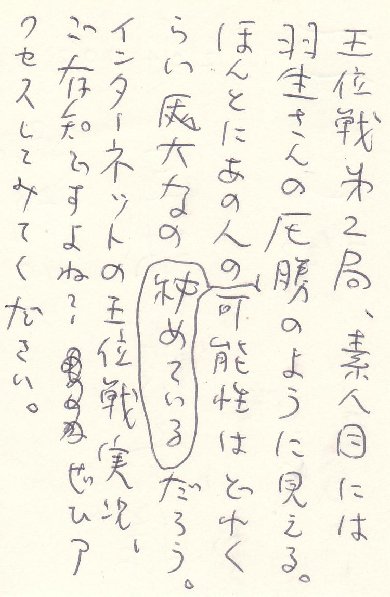 王位戦第2局、素人目には
羽生さんの圧勝のように見える。
ほんとにあの人の可能性はどれく
らい厖大なの秘めているだろう。
インターネットの王位戦実況、
ご存知ですよね？ぜひア
クセスしてみてください。